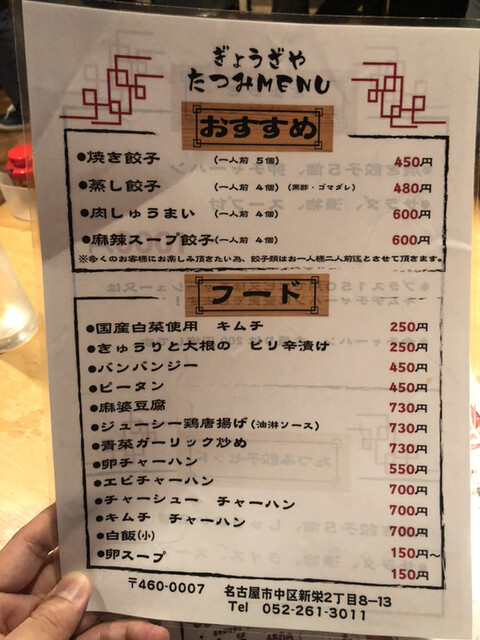 ぎょうざや
たつみMENU
おすすめ
●焼き餃子 (一人前 5個) 450円
●蒸し餃子 (一人前 4個) (黒酢・ゴマダレ) 480円
●肉しゅうまい (一人前 4個) 600円
●麻辣スープ餃子 (一人前 4個) 600円
※多くのお客様にお楽しみ頂きたい為、餃子類はお一人様二人前迄とさせて頂きます。
フード
●国産白菜使用 キムチ 250円
●きゅうりと大根の ピリ辛漬け 250円
●バンバンジー 450円
●ピータン 450円
●麻婆豆腐 730円
●ジューシー鶏唐揚げ(油淋ソース) 730円
●青菜ガーリック炒め 730円
●卵チャーハン 550円
●エビチャーハン 700円
●チャーシュー チャーハン 700円
●キムチ チャーハン 700円
●白飯(小) 150円〜
●卵スープ 150円
〒460-0007 名古屋市中区新栄2丁目8−13
Tel 052-261-3011